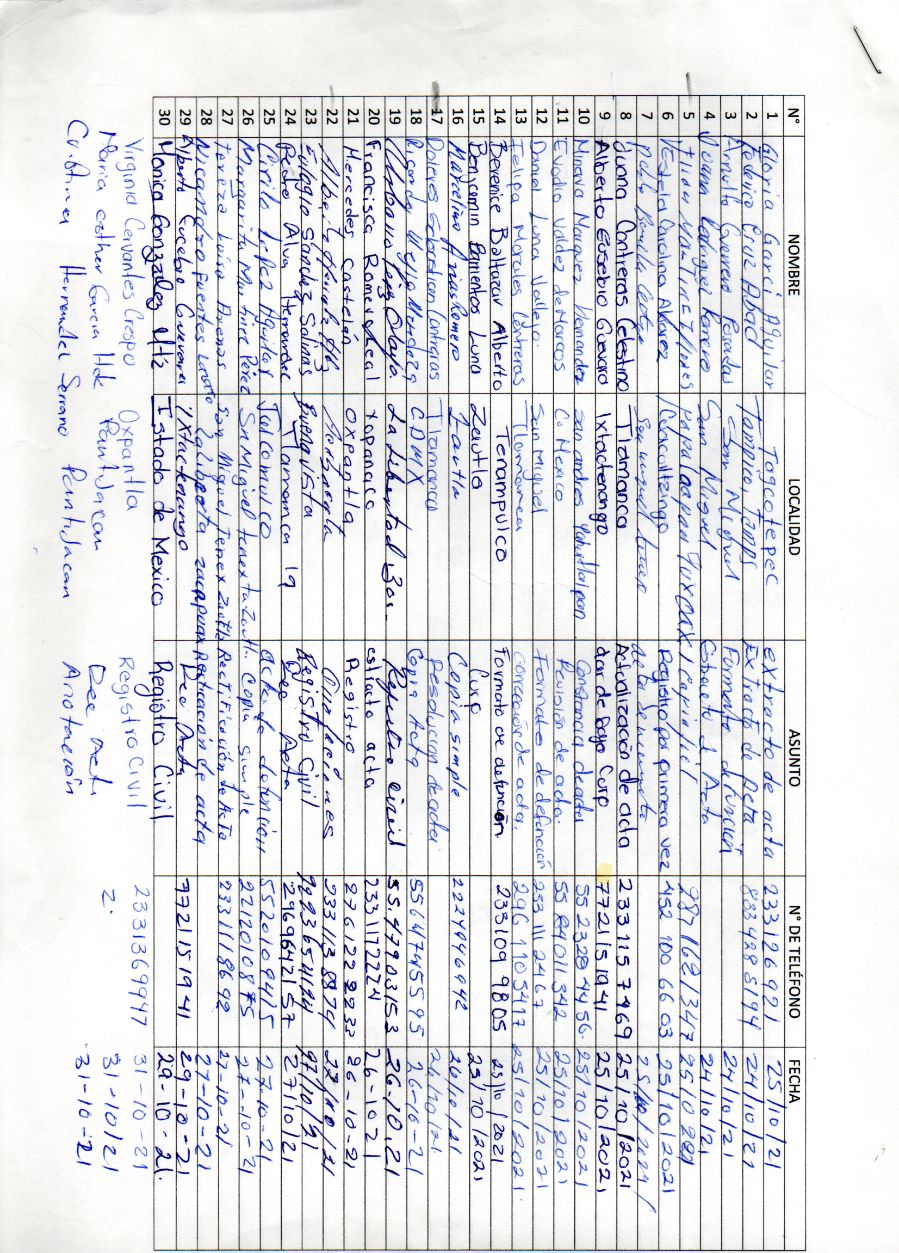 N° NOMBRE LOCALIDAD ASUNTO N° DE TELÉFONO FECHA
1 Gloria Garci Aguilar Togcotepec extracto de acta 233126921 25/10/21
2 Federico Cruz Abad Tampico, Tamps Extracto de acta 8334885194 24/10/21
3 Arnulfo Guerrero Posadas San Miguel Formato difunción 24/10/21
4 Juana Rodriguez San Miguel Extracto d' Acta 24/10/21
5 Papaloapan Tuxtepec 287 162 1347 25/10
6 Estela Carolina Alvarez Registro por primera vez 452 100 66 03 25/10/2021
7 Pablo San miguel
8 Juana Contreras Celestino Tlamanca Actualización de acta 233 115 7469 25/10/2021
9 Alberto Eusebio Guevara Ixtactenango dar de bajo Curp 7721151941 25/10/2021
10 Minava Marquez Hernandez san andres Yahuitlalpan Constancia de acta 55 2328 44 56. 25/10/2021
11 Evodio Valdez de Marcos Co Mexico Revisión de acta. 55 8401 1342 25/10/2021
12 Daniel Luna Vallejo. San Miguel Formato de defunción 233 111 2467 25/10/2021
13 Felipa Morales Contreras Tlamanca corrección de acta. 296 110 5417 25/10/2021.
14 Berenice Baltazar Alberto Tenampulco Formato de defunción 233109 9805 25/10/2021
15 Benjamin Barrientos Luna Zautla Curp 25/10/2021
16 Marcelino Arias Romero Zautla Copia simple 2224946942 26/10/21
17 Dolores Sebastian Contreras Tlamanca 26/10/21
18 Ricarda Mejia Mendez CDMX Copia Acta 5561745595
19 La Libertad Registro civil 55.47903153 26.10.21
20 Francisca Romero Leal xopanaco estracto acta 2331172224 26-10-21
21 Mercedes Castelán Oxpantla Registro 2762222233 26-10-21
22 2331138874 27/10/21
23 Eulogio Sánchez Salinas Buenavista Registro Civil 27/10/21
24 Pedro Alva Hernandez Tlamanca Dee Acta 2969642157 27/10/21
25 Cirilo lopez Aguilar Jalcomulco acta de defuncion 5520109415 27-10-21
26 Margarita Martinez Pérez San Miguel tenextatiloyan Copia simple 2212010875 27-10-21
27 Teresa Luisa San Miguel Tenex zautla Rectificación de Acta 2331118692 27-10-21
28 Nicandro Fuentes Rectificacion de acta 27-10-21
29 Alberto Eucebio Guevara Yxtactenango Dee Acta 7721151941 29-10-21
30 Monica Gonzales Mtz Estado de Mexico Registro Civil 29-10-21.
Virginia Cervantes Crespo Oxpantla Registro Civil 2331369947 31-10-21
Maria esther Garcia Hde Dee Act. 2. 31-10/21
Cristina Hernandez Serrano Anotación 31-10-21